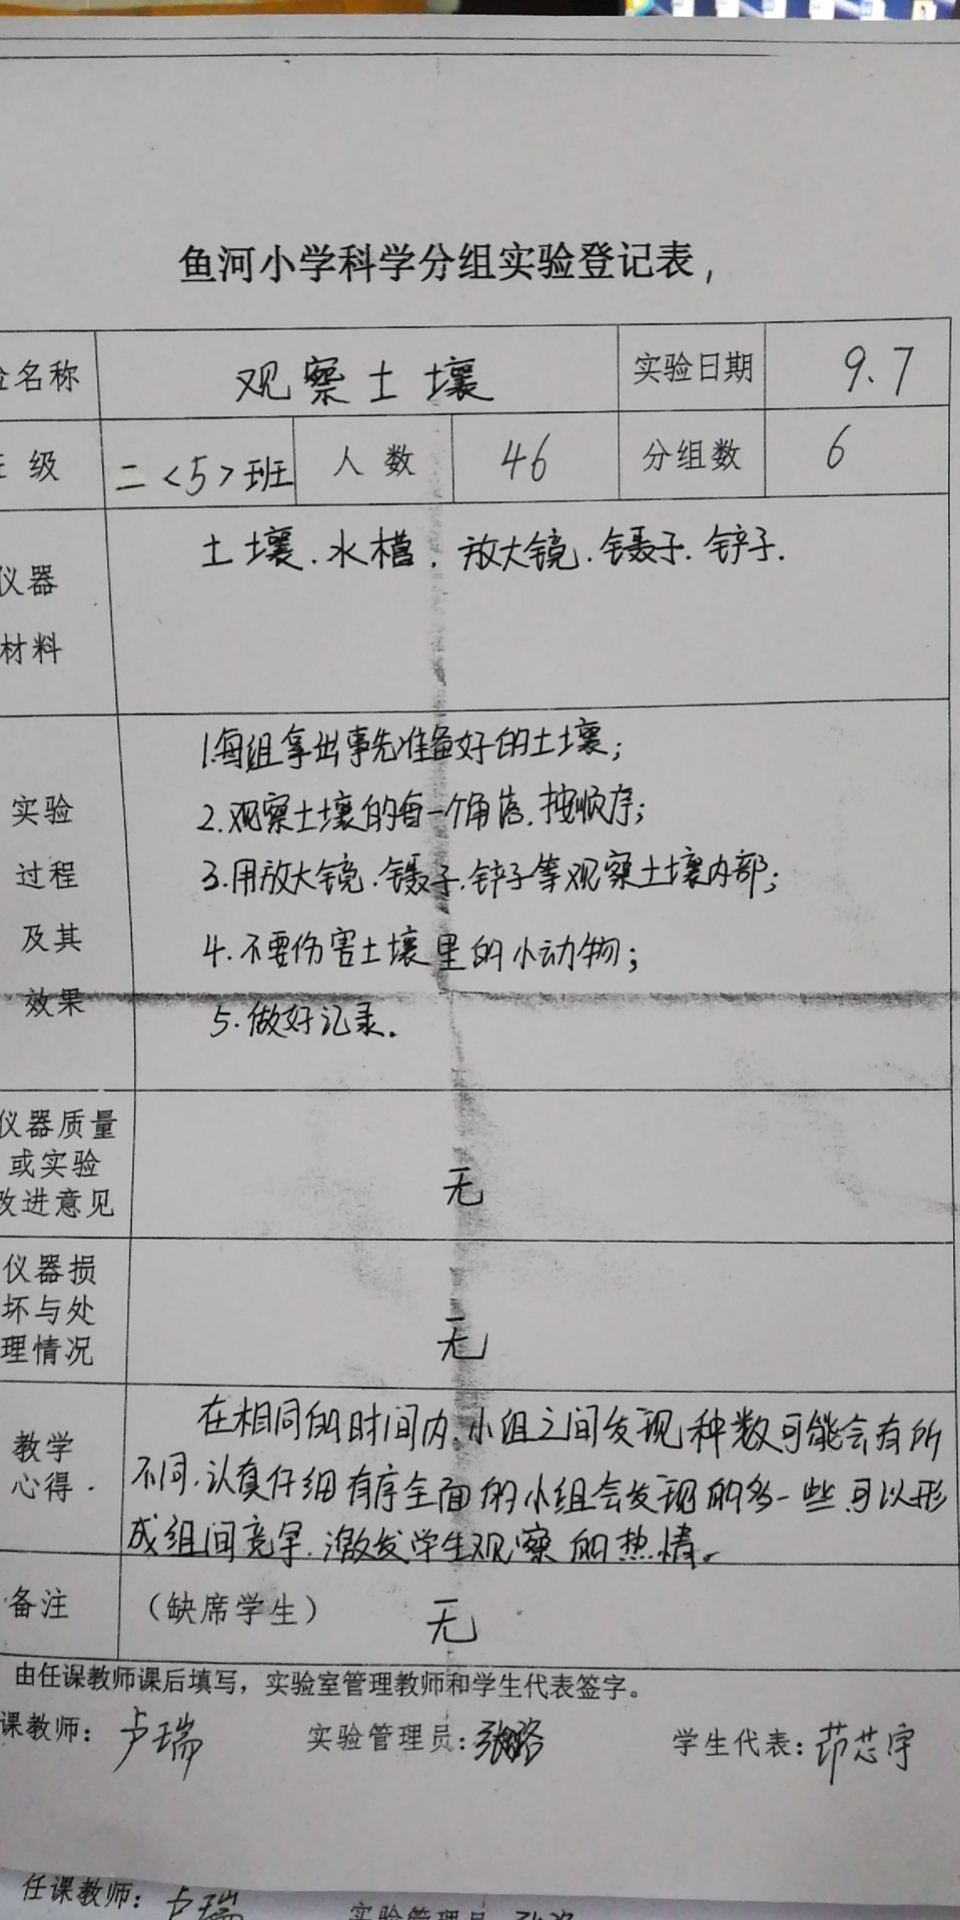 鱼河小学科学分组实验登记表,
名称 观察土壤 实验日期 9.7
级 二<5>班 人数 46 分组数 6
仪器
材料
土壤.水槽.放大镜.镊子.铲子.
实验
过程
及其
效果
1.每组拿出事先准备好的土壤;
2.观察土壤的每一个角落.按顺序;
3.用放大镜.镊子.铲子等观察土壤内部;
4.不要伤害土壤里的小动物;
5.做好记录.
仪器质量
或实验
改进意见
无
仪器损
坏与处
理情况
无
教学
心得.
在相同的时间内.小组之间发现种数可能会有所
不同.认真仔细有序全面的小组会发现的多一些可以形
成组间竞争.激发学生观察的热情。
备注 (缺席学生) 无
由任课教师课后填写，实验室管理教师和学生代表签字。
课教师: 卢瑞 实验管理员: 学生代表: 芯宇
任课教师: 卢瑞 实验管理员